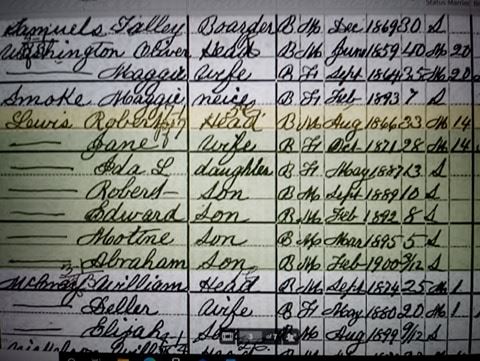 Status Married,
Samuels Talley Boarder B M Dec 1869 30 S
Washington Oliver Head B M June 1859 40 M 20
— Maggie Wife B F Sept 1864 35 M 20
Smoke Maggie neice B F Feb 1893 7 S
Lewis Robert Head B M Aug 1866 33 M 14
— Jane Wife B F Oct 1871 28 M 14
— Ida L daughter B F May 1887 13 S
— Robert Son B M Sept 1889 10 S
— Edward Son B M Feb 1892 8 S
— Motine Son B M Mar 1895 5 S
— Abraham Son B M Feb 1900 3/12 S
William Head B M Sept 1874 25 M 1
— Deller Wife B F May 1880 20 M 1
— Elijah B M Aug 1899 9/12 S